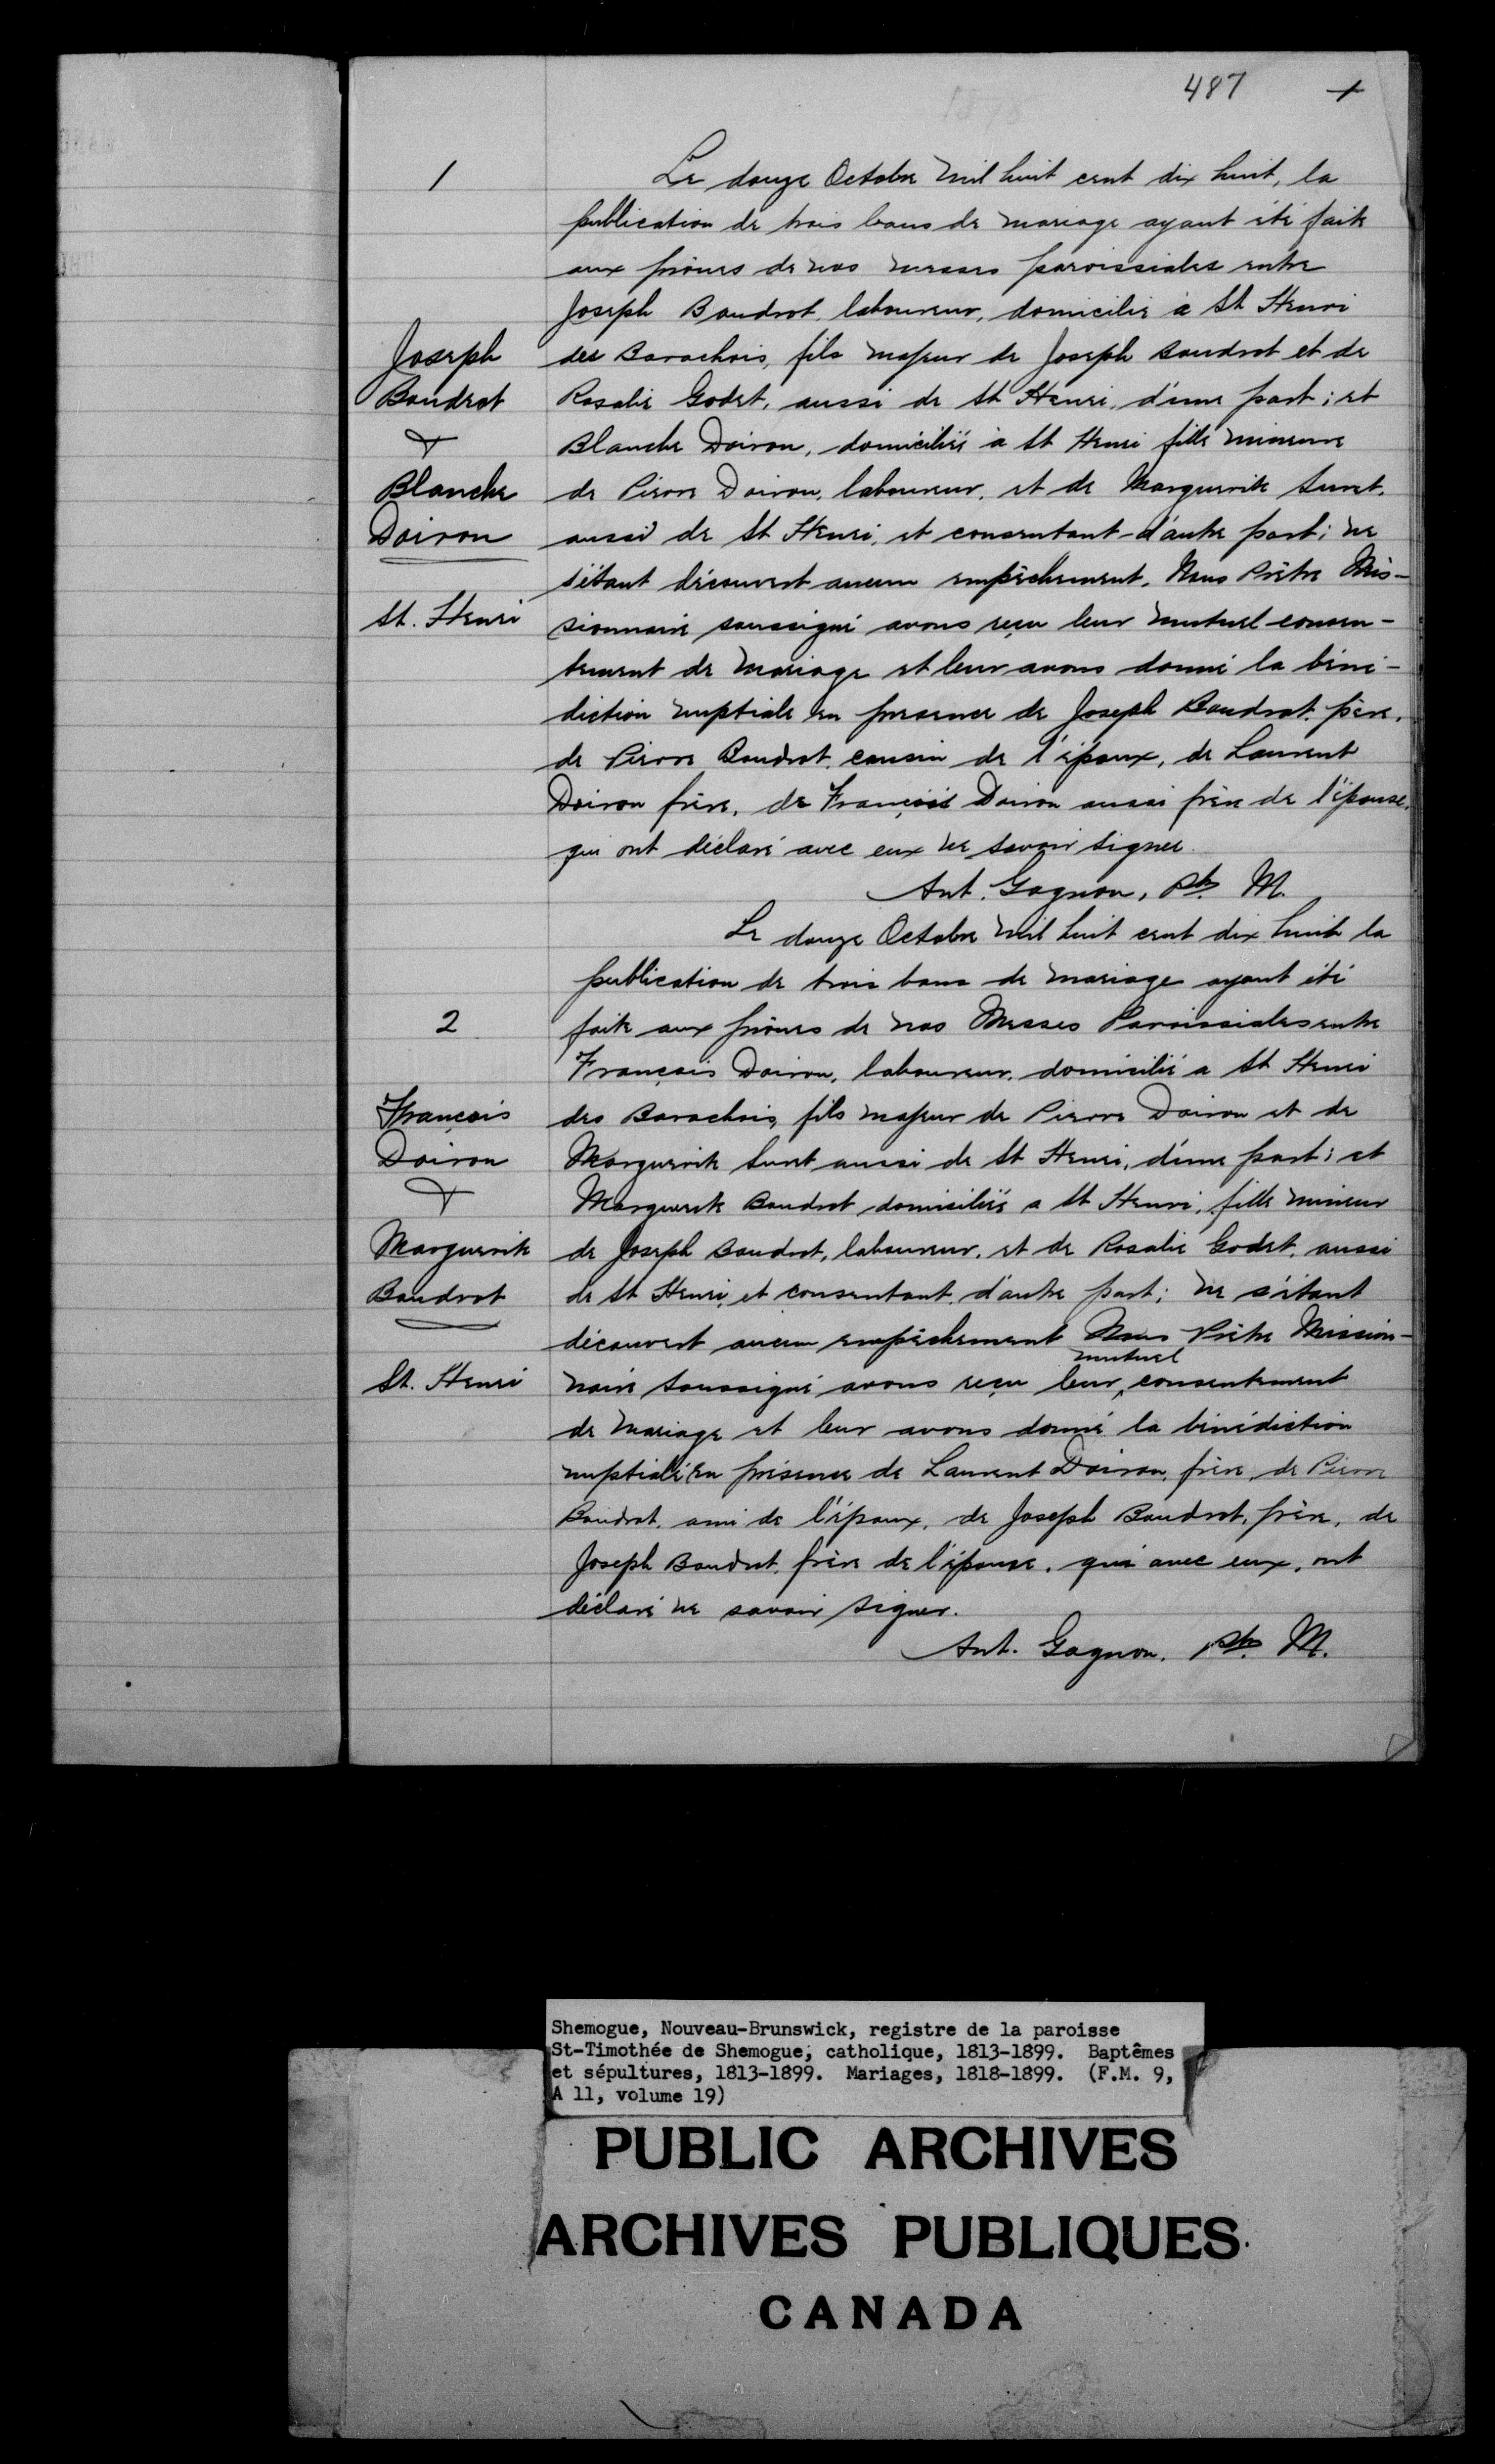 487 +
1
Le douze Octobre mil huit cent dix huit, la
publication de trois bans de mariage ayant été faite
aux prônes de nos messes paroissiales entre
Joseph Boudrot, laboureur, domicilié à St Henri
des Barachois, fils majeur de Joseph Boudrot et de
Rosalie Godet, aussi de St Henri, d'une part; et
Blanche Doiron, domiciliée à St Henri fille mineure
de Pierre Doiron, laboureur, et de Marguerite Suret,
aussi de St Henri, et consentant d'autre part; ne
s'étant découvert aucun empêchement, Nous Prêtre Mis-
sionnaire soussigné avons reçu leur mutuel consen-
tement de mariage et leur avons donné la béné-
diction nuptiale en presence de Joseph Boudrot, père,
de Pierre Boudrot, cousin de l'époux, de Laurent
Doiron frère, de François Doiron aussi frère de l'épouse,
qui ont déclaré avec eux ne savoir signer.
Ant. Gagnon, Ptr. M.
Joseph
Boudrot
&
Blanche
Doiron
St. Henri
Le douze Octobre mil huit cent dix huit la
publication de trois bans de mariage ayant été
2
faite aux prônes de nos Messes Paroissiales entre
François Doiron, laboureur, domicilié a St Henri
des Barachois, fils majeur de Pierre Doiron et de
Marguerite Suret aussi de St Henri, d'une part; et
Marguerite Boudrot domiciliée a St Henri, fille mineur
de Joseph Boudrot, laboureur, et de Rosalie Godet, aussi
de St Henri, et consentant, d'autre part; ne s'étant
découvert aucun empêchement Nous Prêtre Mission-
naire soussigné avons reçu leur mutuel consentement
de mariage et leur avons donné la bénédiction
nuptiale en présence de Laurent Doiron, frère, de Pierre
Boudrot, ami de l'époux, de Joseph Boudrot, père, de
Joseph Boudrot, frère de l'épouse, qui avec eux, ont
déclaré ne savoir signer.
Ant. Gagnon, Ptr. M.
François
Doiron
&
Marguerite
Boudrot
St. Henri
Shemogue, Nouveau-Brunswick, registre de la paroisse
St-Timothée de Shemogue, catholique, 1813-1899. Baptêmes
et sépultures, 1813-1899. Mariages, 1818-1899. (F.M. 9,
A 11, volume 19)
PUBLIC ARCHIVES
ARCHIVES PUBLIQUES
CANADA